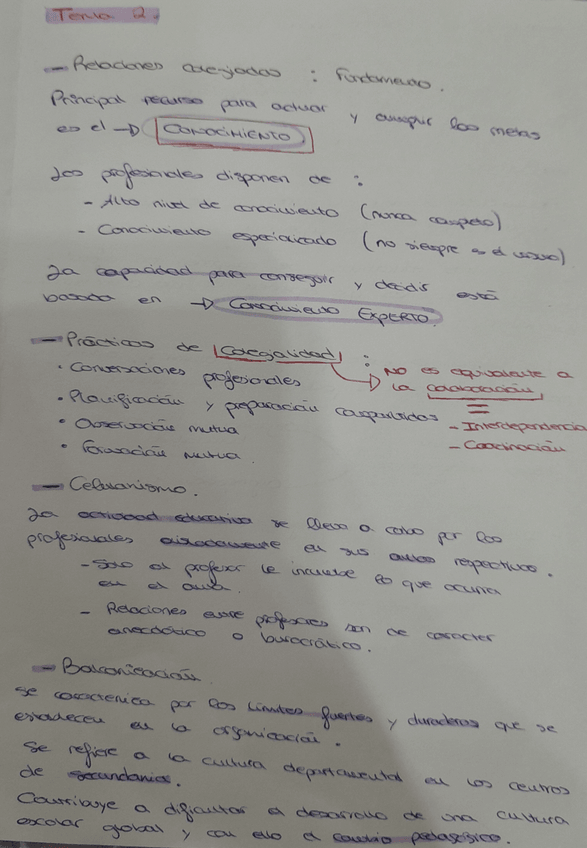 Tema 2.
- Relaciones colegiadas : Fundamento.
Principal recurso para actuar y cumplir las metas
es el → CONOCIMIENTO
Los profesionales disponen de :
- Alto nivel de conocimiento (nunca completo)
- Conocimiento especializado (no siempre es el mismo)
La capacidad para conseguir y decidir está
basada en → CONOCIMIENTO EXPERTO.
- Prácticas de Colegialidad :
NO es equivalente a
la colaboración
=
- Interdependencia
- Coordinación
• Conversaciones profesionales
• Planificación y preparación compartidas
• Observación mutua
• Formación mutua.
- Celularismo.
La actividad educativa se lleva a cabo por los
profesionales aisladamente en sus aulas respectivas.
- Solo al profesor le incumbe lo que ocurra
en el aula.
- Relaciones entre profesores son de carácter
anecdótico o burocrático.
- Balcanización.
Se caracteriza por los límites fuertes y duraderos que se
establecen en la organización.
Se refiere a la cultura departamental en los centros
de secundaria.
Contribuye a dificultar el desarrollo de una cultura
escolar global y con ello el cambio pedagógico.